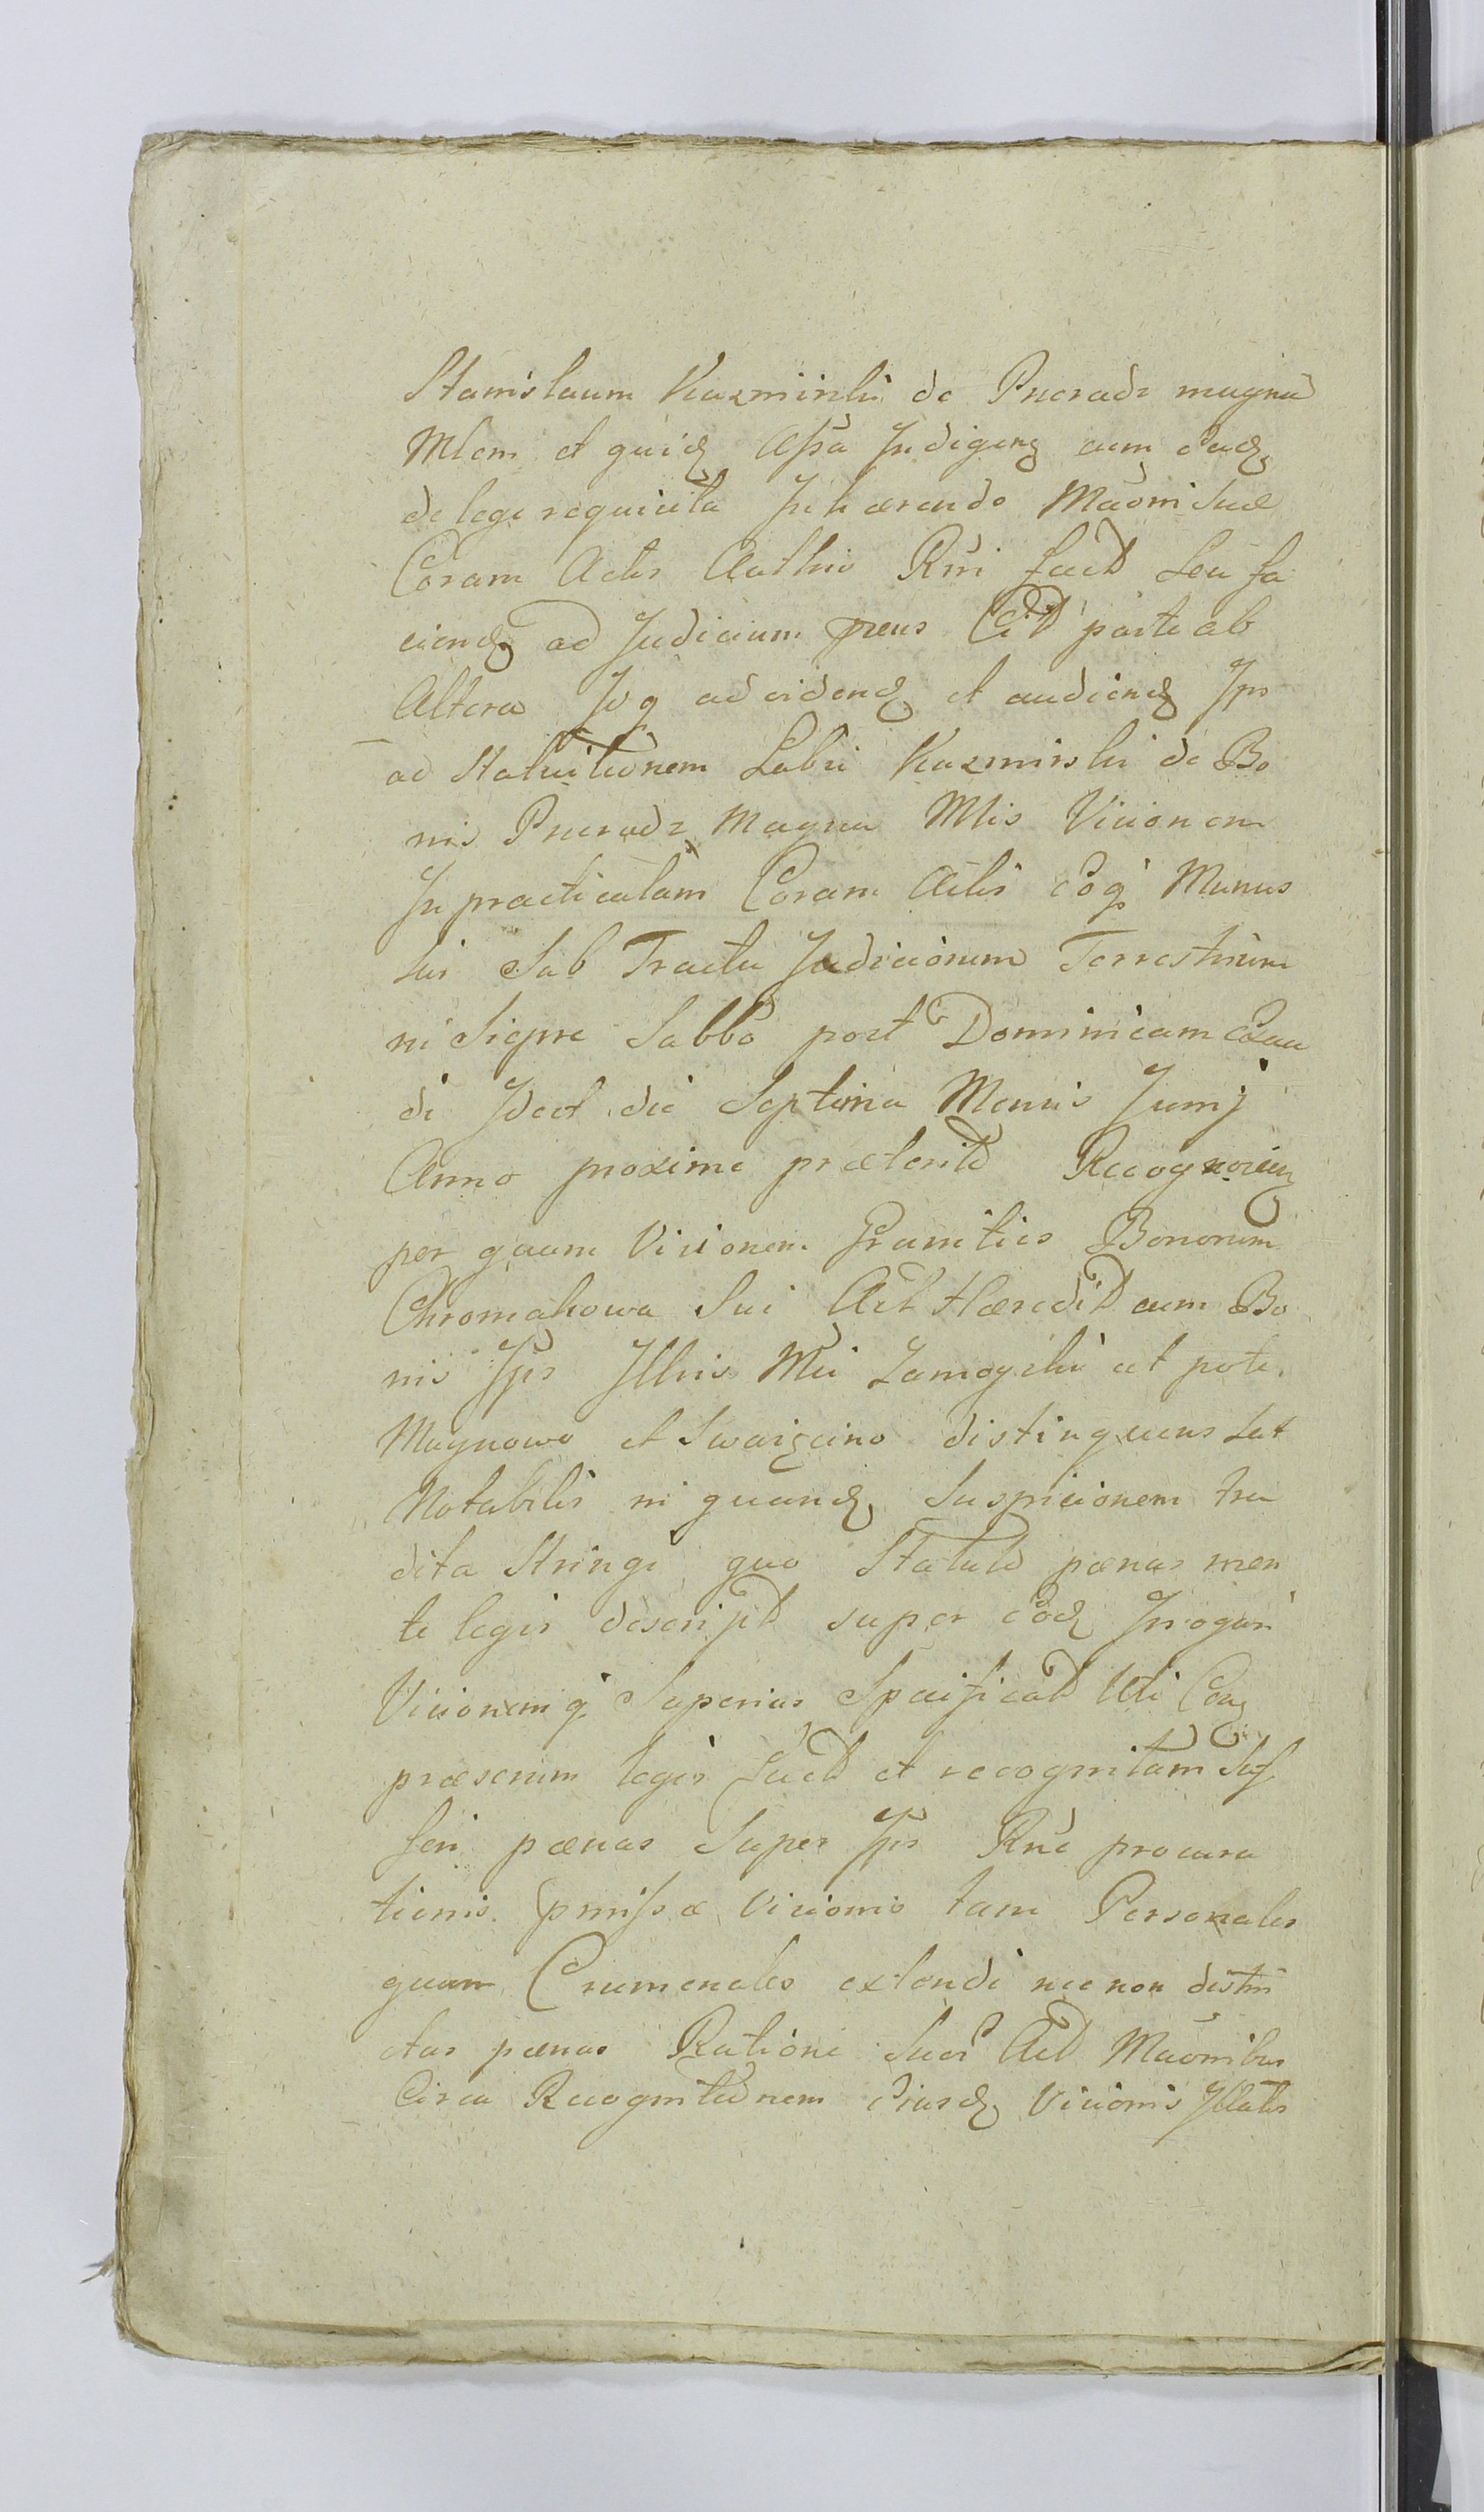 Stanislaum Kazmirski de Pneradz magna
Mlem et quidz Assā Indigenz cum eadz
de lege requisita Inhærendo Māōni suæ
Coram Actis Authis Rīn fact seu fa
ciendz ad Judicium præns Cit parte ab
Altera Idq ad vidend et audiend Ips
ad Statuitionem Labri Kazmirski de Bo
nis Pneradz Magna Mlis Visionem
In practicatam Coram Actis eōq Munus
sui Sub Tractu Judiciorum Terrestrium
ni Siepre Sabbō post Dominicam Exau
di Idest die Septima Mensis Junij
Anno proxime præterito Recognoscen
per quam Visionem Granities Bonorum
Chromakowa sui Act Hæredit cum Bo
nis Ips Illris Mci Zamoyski ut pote
Magnowo et Swaiżcino distinguens sat
Notabilis ni quandz Suspicionem tra
dita Stringi quo Statuto pœnas men
te legis descript super eōdz Irrogari
Visionemq Superius Specificat Uti Con
præserim legis fact et recognitam Suf
feri pœnas Super Ips Rnē procura
tionis pmissæ Visionis tam Personales
quam Crumenales extendi nec non distri
ctas pœnas Ratione Suor Act Māōnibus
Circa Recognitionem Eiusdz Visionis Illatis